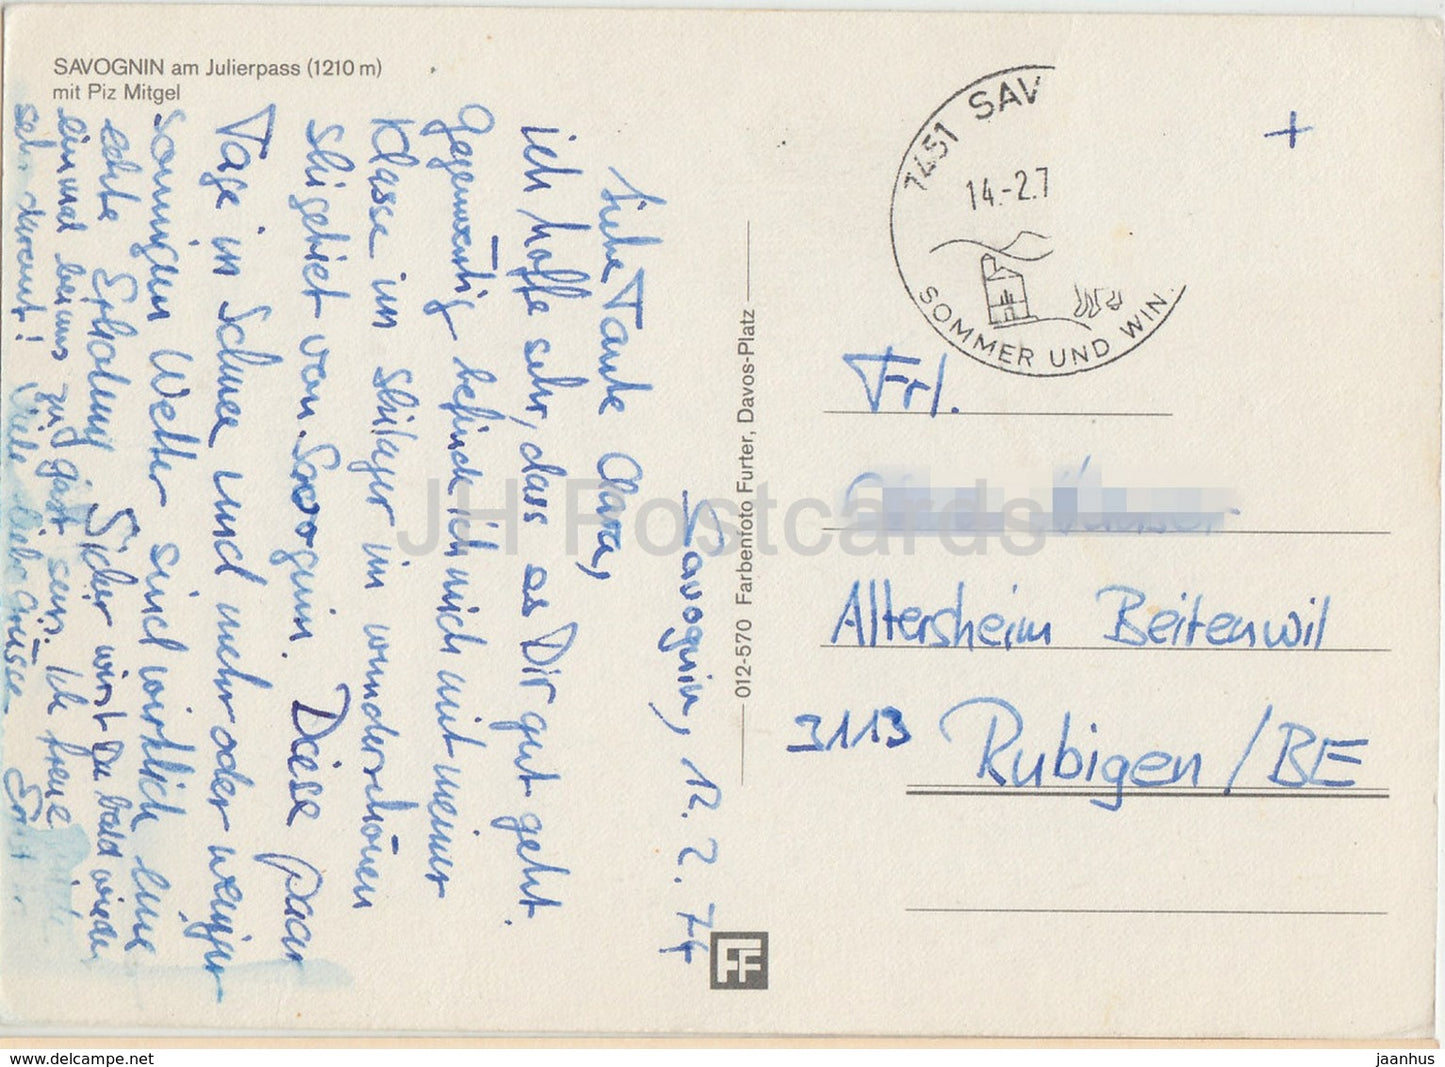 SAVOGNIN am Julierpass (1210 m)
mit Piz Mitgel
Savognin, 12.2.74
Liebe Tante Clara,
ich hoffe sehr, dass es Dir gut geht.
Gegenwärtig befinde ich mich mit meiner
Klasse im Skilager im wunderschönen
Skigebiet von Savognin. Diese paar
Tage in Schnee und mehr oder weniger
sonnigem Wetter sind wirklich eine
echte Erholung. Sicher wirst Du bald wieder
einmal bei uns zu Gast sein. Ich freue
sehr darauf! Viele liebe Grüsse
012-570 Farbenfoto Furter, Davos-Platz
FF
7451 SAV
14.-2.7
SOMMER UND WIN.
+
Frl.
Altersheim Beitenwil
3113 Rubigen / BE
JH Postcards
www.delcampe.net
jaanhus